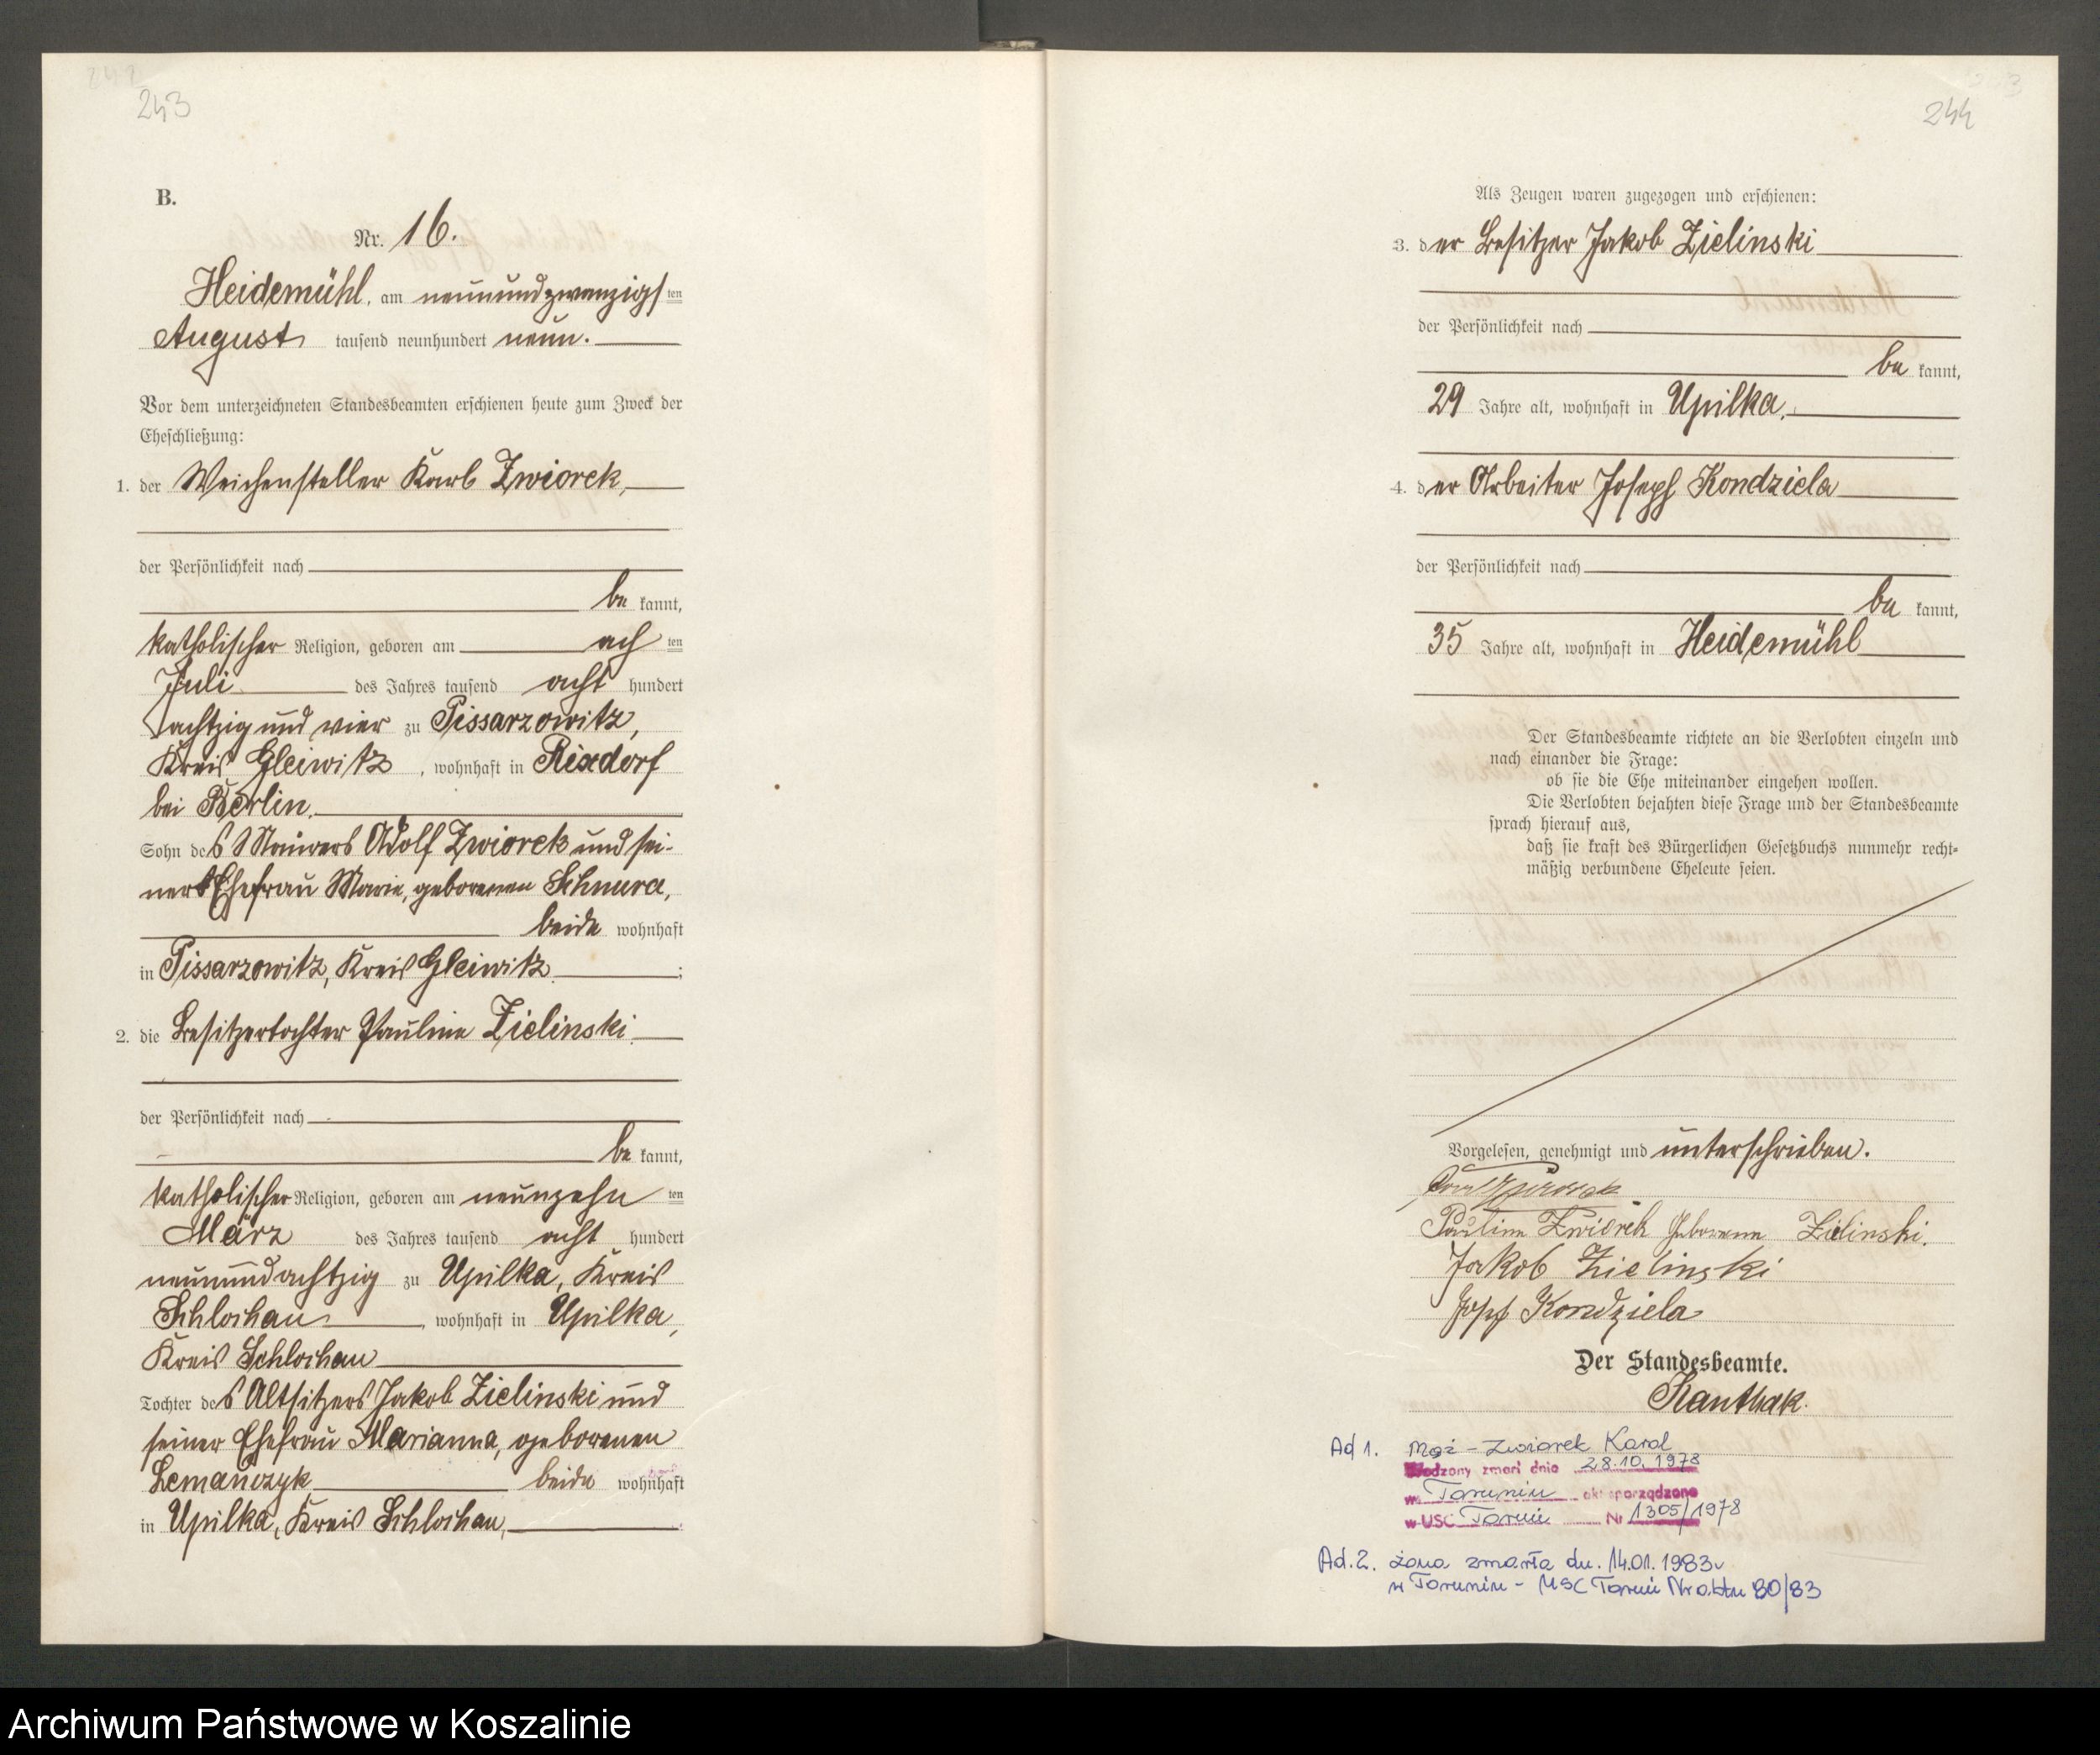 243
B.
Nr. 16.
Heidemühl, am neunundzwanzigsten
August tausend neunhundert neun.
Vor dem unterzeichneten Standesbeamten erschienen heute zum Zweck der
Eheschließung:
1. der Weichensteller Karl Zwiorek,
der Persönlichkeit nach
be kannt,
katholischer Religion, geboren am ach ten
Juli des Jahres tausend acht hundert
achtzig und vier zu Pissarzowitz,
Kreis Gleiwitz, wohnhaft in Rixdorf
bei Berlin.
Sohn des Maurers Adolf Zwiorek und sei-
ner Ehefrau Marie, geborenen Schnura,
beide wohnhaft
in Pissarzowitz, Kreis Gleiwitz ;
2. die Besitzertochter Pauline Zielinski.
der Persönlichkeit nach
be kannt,
katholischer Religion, geboren am neunzehn ten
März des Jahres tausend acht hundert
neunundachtzig zu Upilka, Kreis
Schlochau, wohnhaft in Upilka,
Kreis Schlochau
Tochter des Altsitzers Jakob Zielinski und
seiner Ehefrau Marianna, geborenen
Lemańczyk, beide wohnhaft
in Upilka, Kreis Schlochau,
244
Als Zeugen waren zugezogen und erschienen:
3. der Besitzer Jakob Zielinski
der Persönlichkeit nach
be kannt,
29 Jahre alt, wohnhaft in Upilka,
4. der Arbeiter Joseph Kondziela
der Persönlichkeit nach
be kannt,
35 Jahre alt, wohnhaft in Heidemühl
Der Standesbeamte richtete an die Verlobten einzeln und
nach einander die Frage:
ob sie die Ehe miteinander eingehen wollen.
Die Verlobten bejahten diese Frage und der Standesbeamte
sprach hierauf aus,
daß sie kraft des Bürgerlichen Gesetzbuchs nunmehr recht-
mäßig verbundene Eheleute seien.
Vorgelesen, genehmigt und unterschrieben.
Zwiorek
Pauline Zwiorek geborene Zielinski.
Jakob Zielinski
Josef Kondziela
Der Standesbeamte.
Kanthak.
Ad 1. Mąż - Zwiorek Karol
zmarł dnia 28.10.1978
w Toruniu akt sporządzono
w USC Toruń Nr 1305/1978
Ad. 2. żona zmarła dn. 14.01.1983
w Toruniu - USC Toruń Nr aktu 80/83
Archiwum Państwowe w Koszalinie